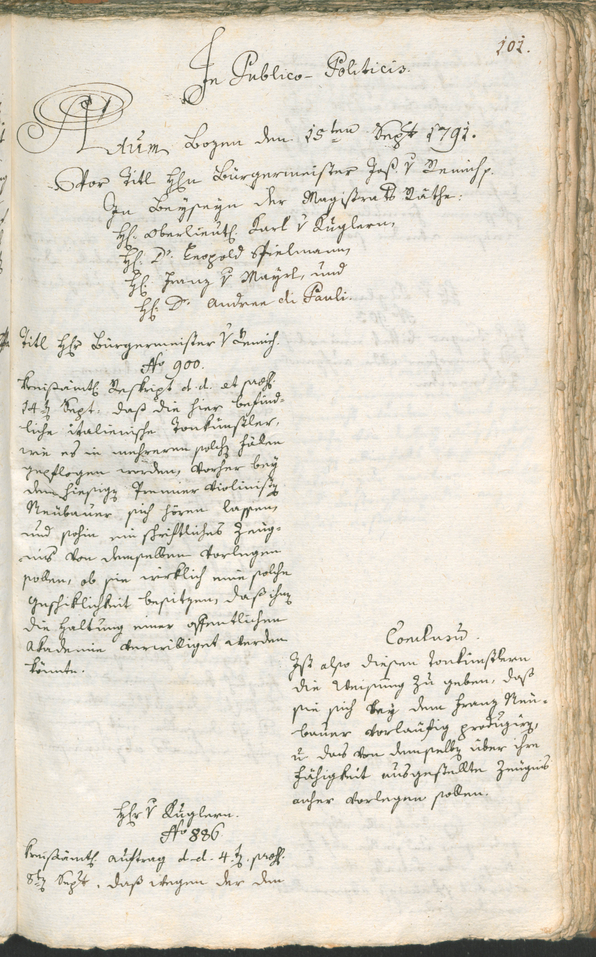 101.
In Publico-Politicis.
Actum Bozen den 15ten Sept 1791.
Vor Titl Hrn Bürgermeister Jos. v Remich.
In Beyseyn der Magistrats Räthe:
H. Oberlieut. Karl v Kuglern,
H. Dr. Leopold Spielmann,
H. Franz v Mayrl, und
H. Dr. Andree di Pauli.
Titl Hr Bürgermeister v Remich.
No 900.
Kreisämtl. Reskript d. d. et
14t Sept, daß die hier befind-
liche italienische Tonkünstler,
wie es in mehreren solch Fälen
gepflogen worden, vorher bey
dem hiesig Premier Violinist
Neubauer sich hören lassen,
und sohin ein schriftliches Zeug-
nis von demselben vorlegen
sollen, ob sie wirklich eine solche
Geschiklichkeit besitzen, daß ihn
die Haltung einer öffentlichen
Akademie verwilliget werden
könnte.
Conclusum.
Ist also diesen Tonkünstlern
die Weisung zu geben, daß
sie sich bey dem Franz Neu-
bauer vorläufig produzir,
u das von demselb über ihre
Fähigkeit ausgestellte Zeugnis
anher vorlegen sollen.
Hr v Kuglern.
No 886
Kreisämtl. Auftrag d. d. 4t
8t Sept, daß wegen der dem